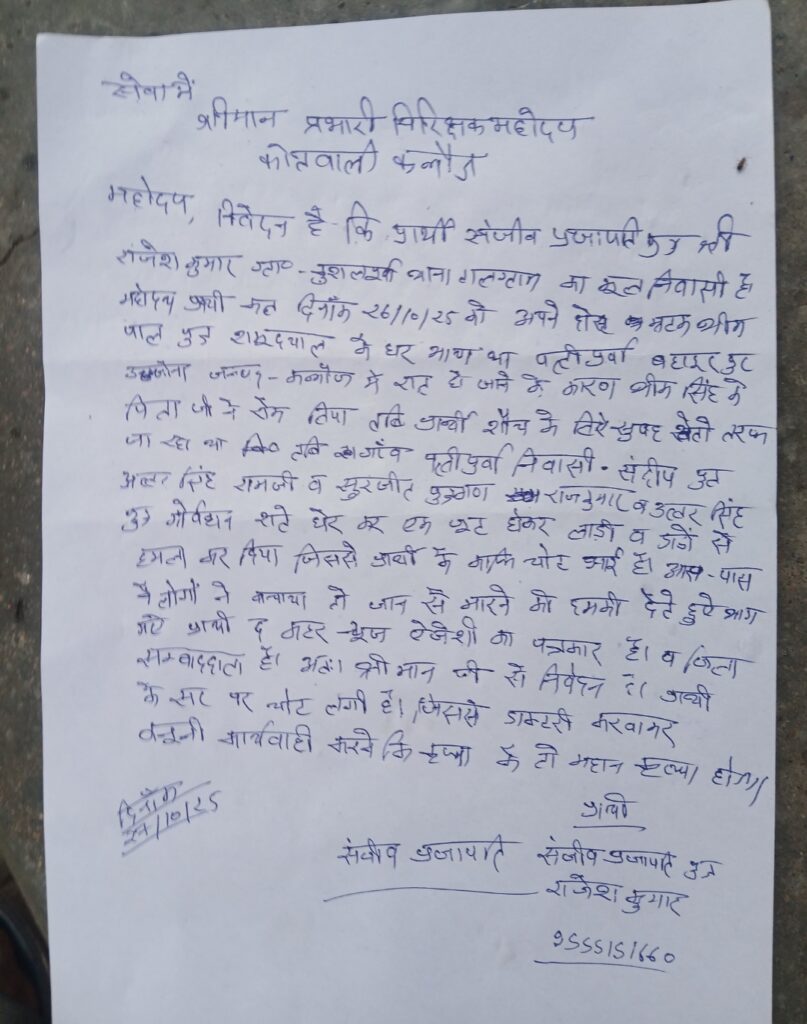 सेवा में
श्रीमान प्रभारी निरिक्षक महोदय
कोतवाली कन्नौज
महोदय, निवेदन है कि प्रार्थी संजीव प्रजापति पुत्र श्री
राजेश कुमार ग्राम- थाना का मूल निवासी है
महोदय प्रार्थी कल दिनाँक 26/10/25 को अपने दोस्त भीम
पाल पुत्र रामदयाल के घर आया था पत्तीपुर्वा बहादुर पुर
जनपद- कन्नौज में रात हो जाने के कारण भीम सिंह के
पिता जी ने रोक लिया तभि प्रार्थी शौच के लिऐ सुबह खेतो तरफ
जा रहा था तभि गाँव पत्तीपुर्वा निवासी. संदीप पुत्र
सिंह रामजी व सुरजीत पुत्रगण राजकुमार व सिंह
पुत्र गोर्वधन घेर कर एक जुट होकर लाठी व डंडों से
हमला कर दिया जिससे प्रार्थी के काफि चोट आई है। आस-पास
के लोगों ने बचाया तो जान से मारने की धमकी देते हुऐ भाग
गऐ प्रार्थी द ऐजेंसी का पत्रकार है। व जिला
सम्वाददाता है। अतः श्री मान जी से निवेदन है। प्रार्थी
के सर पर चोट लगी है। जिससे डाक्टरी करवाकर
कानूनी कार्यवाही करने कि कृप्या करें तो महान कृप्या होगी।
दिनाँक
27/10/25
प्रार्थी
संजीव प्रजापति संजीव प्रजापति पुत्र
राजेश कुमार
9555151660